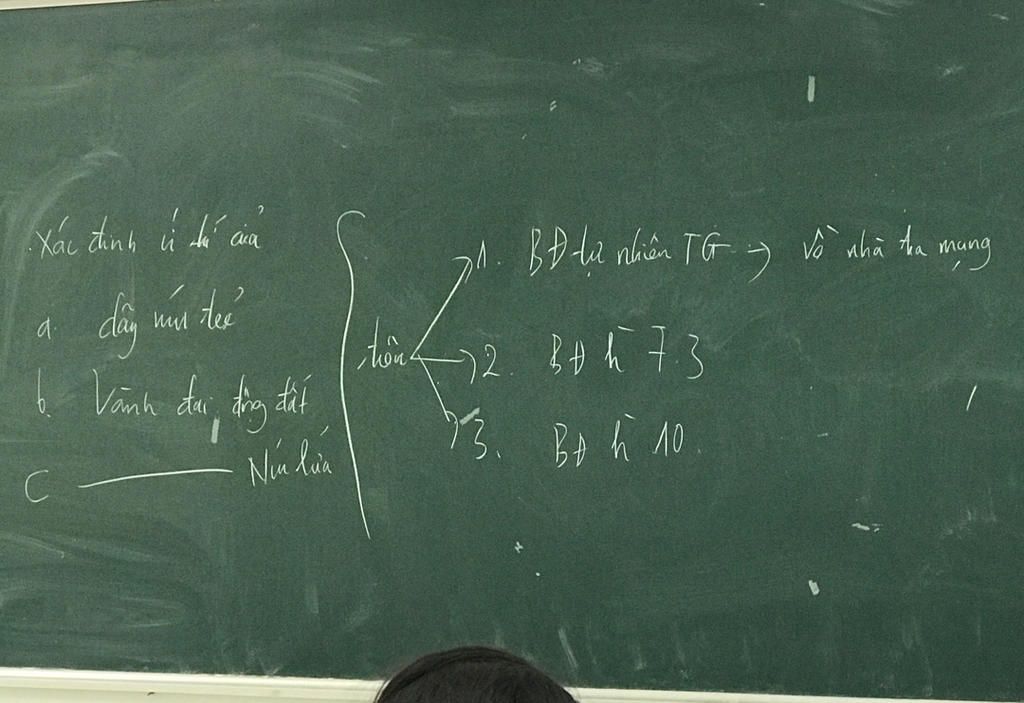 Xác định vị trí của
a. dãy núi trẻ
b. Vành đai động đất
C ——— Núi lửa
trên
1. BĐ tự nhiên TG → Vô nhà tra mạng
2. BĐ h 7.3
3. BĐ h 10